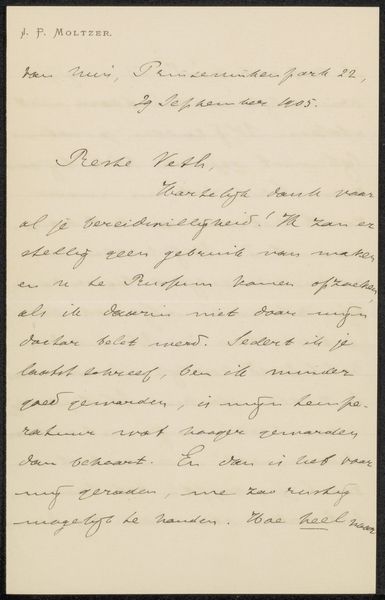 J. P. MOLTZER.
den Prinsevinkenpark 22,
29 September 1905.
Beste Veth,
Hartelijk dank voor
al je bereidwilligheid! Ik zou er
stellig geen gebruik van maken
en u te Bussum komen opzoeken,
als ik daarin niet door mijn
doctor belet werd. Sedert ik je
laatst schreef, ben ik minder
goed geworden, is mijn tempe-
ratuur wat hooger geworden
dan behoort. En dan is het voor
mij geraden, me zoo rustig
mogelijk te houden. Hoe heel